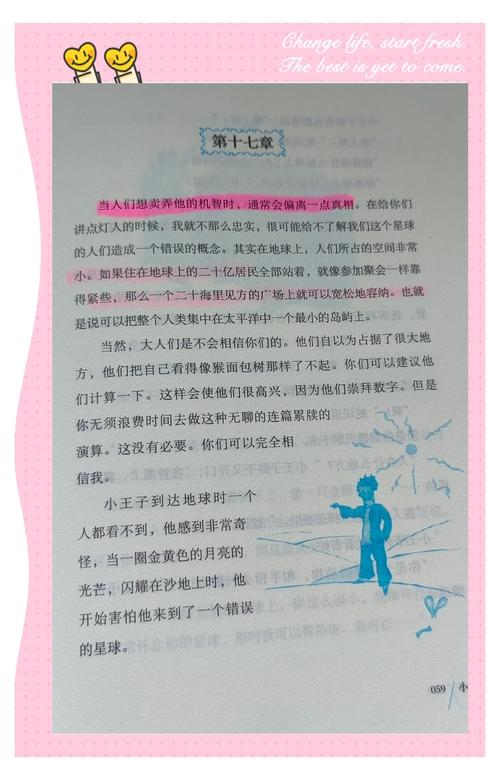 Change life, start fresh.
The best is yet to come.
第十七章
当人们想卖弄他的机智时，通常会偏离一点真相。在给你们
讲点灯人的时候，我就不那么忠实，很可能给不了解我们这个星球
的人们造成一个错误的概念。其实在地球上，人们所占的空间非常
小。如果住在地球上的二十亿居民全部站着，就像参加聚会一样靠
得紧些，那么一个二十海里见方的广场上就可以宽松地容纳。也就
是说可以把整个人类集中在太平洋中一个最小的岛屿上。
当然，大人们是不会相信你们的。他们自以为占据了很大地
方，他们把自己看得像猴面包树那样了不起。你们可以建议他
们计算一下。这样会使他们很高兴，因为他们崇拜数字。但是
你无须浪费时间去做这种无聊的连篇累牍的
演算。这没有必要。你们可以完全相
信我。
小王子到达地球时一个
人都看不到，他感到非常奇
怪，当一圈金黄色的月亮的
光芒，闪耀在沙地上时，他
开始害怕他来到了一个错误
的星球。
059
小